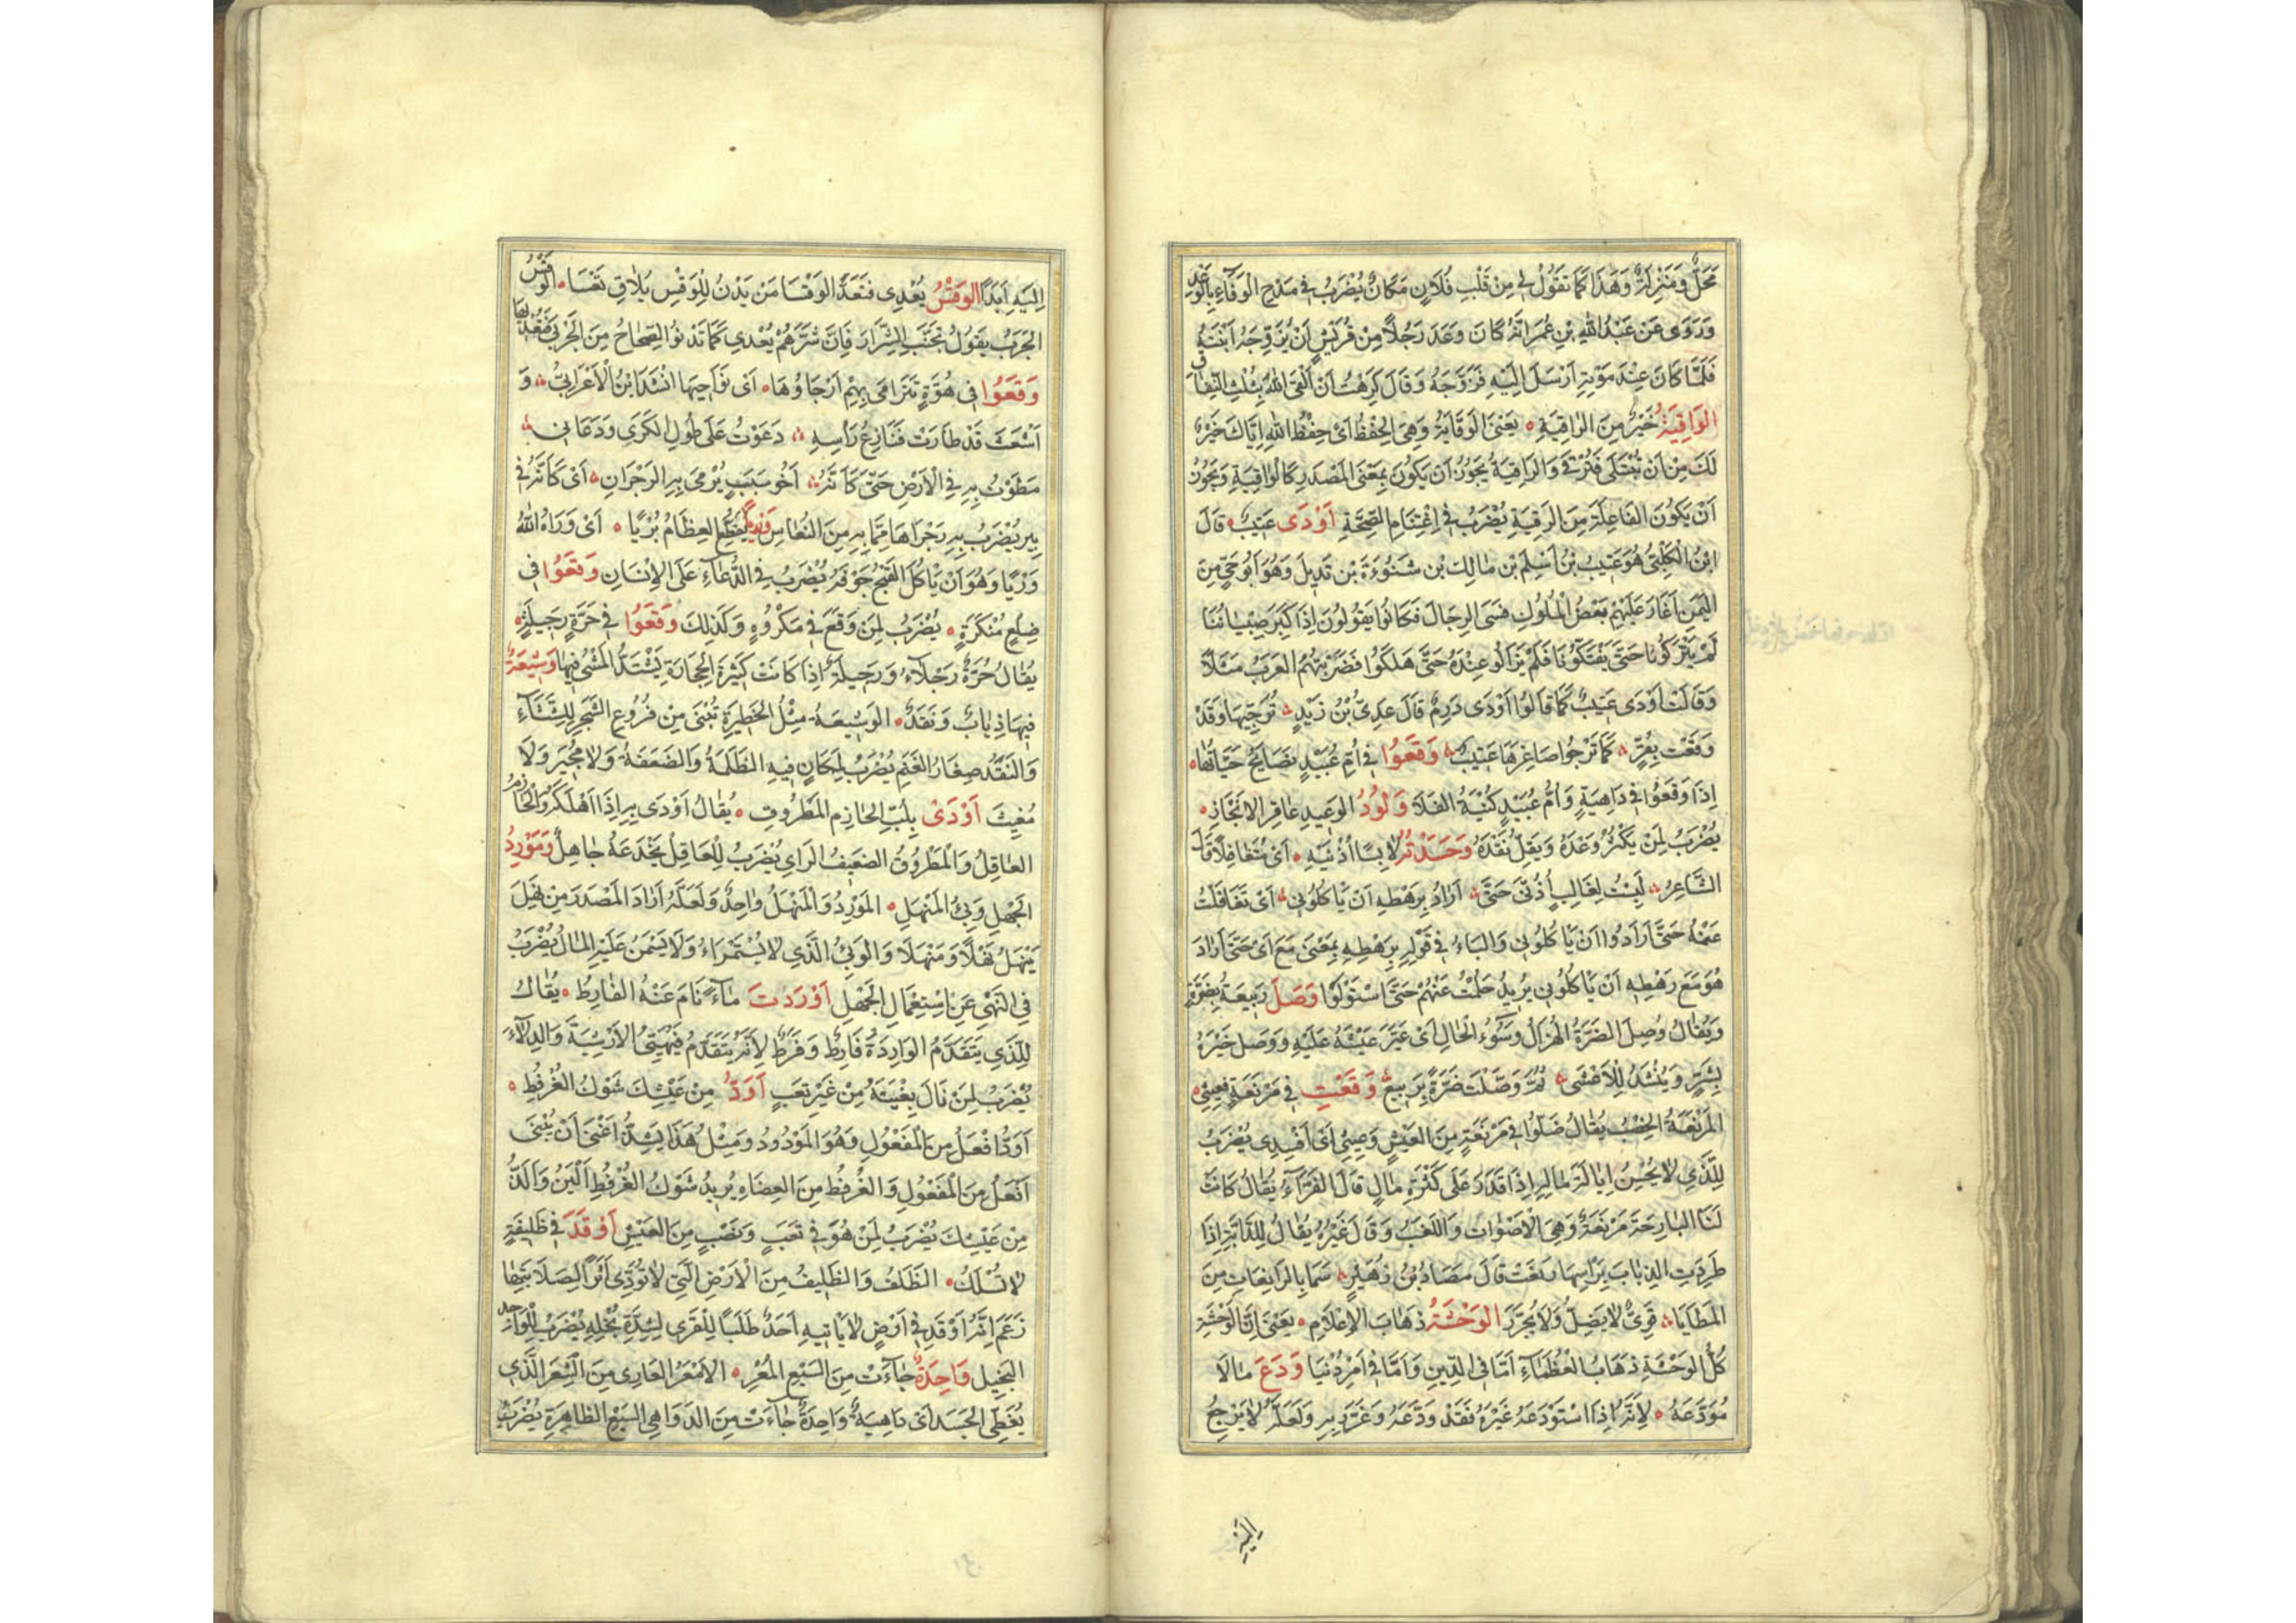 مَحَلٌّ وَمَنْزِلَةٌ وَهَذَا كَمَا تَقُولُ لِي مِنْ قَلْبِ فُلَانٍ مَكَانٌ يُضْرَبُ فِي مَدْحِ الْوَفَاءِ بِالْوَعْدِ
وَرَوَى عَنْ عَبْدُ اللهِ بْنِ عُمَرَ أَنَّهُ كَانَ وَعَدَ رَجُلًا مِنْ قُرَيْشٍ أَنْ يُزَوِّجَهُ ابْنَتَهُ
فَلَمَّا كَانَ عِنْدَ مَوْتِهِ أَرْسَلَ إِلَيْهِ فَزَوَّجَهُ وَقَالَ كَرِهْتُ أَنْ أَلْقَى اللهَ بِثُلُثِ النِّفَاقِ
الْوَاقِيَةُ خَيْرٌ مِنَ الرَّاقِيَةِ يَعْنِي الْوِقَايَةُ وَهِيَ الْحِفْظُ أَيْ حِفْظُ اللهِ إِيَّاكَ خَيْرٌ
لَكَ مِنْ أَنْ تُبْتَلَى فَتُرْقَى وَالرَّاقِيَةُ يَجُوزُ أَنْ يَكُونَ بِمَعْنَى الْمَصْدَرِ كَالْوَاقِيَةِ وَيَجُوزُ
أَنْ يَكُونَ الْفَاعِلَةَ مِنَ الرُّقْيَةِ يُضْرَبُ فِي اغْتِنَامِ الصِّحَّةِ أَوْدَى عَتِيبٌ قَالَ
ابْنُ الْكَلْبِيِّ هُوَ عَتِيبُ بْنُ أَسْلَمَ بْنِ مَالِكِ بْنِ شَنُوءَةَ بْنِ تَدِيلَ وَهُوَ أَبُو حَيٍّ مِنَ
الْيَمَنِ أَغَارَ عَلَيْهِمْ بَعْضُ الْمُلُوكِ فَسَبَى الرِّجَالَ فَكَانُوا يَقُولُونَ إِذَا كَبِرَ صِبْيَانُنَا
لَمْ يَتْرُكُونَا حَتَّى يَفْتَكُّونَا فَلَمْ يَزَالُو عِنْدَهُ حَتَّى هَلَكُوا فَضَرَبَتْهُمُ الْعَرَبُ مَثَلًا
وَقَالَتْ أَوْدَى عَتِيبٌ كَمَا قَالُوا أَوْدَى دَرِمٌ قَالَ عَدِيُّ بْنُ زَيْدٍ تُرَجِّيهَا وَقَدْ
وَقَعَتْ بِقُرٍّ كَمَا تَرْجُوا صَاغِرَهَا عَتِيبٌ وَقَعُوا فِي أُمِّ عُبَيْدٍ تَصَايَحُ حَيَّاتُهَا
إِذَا وَقَعُوا فِي دَاهِيَةٍ وَأُمُّ عُبَيْدٍ كُنْيَةُ الْفَلَاةِ وَلُودُ الْوَعِيدِ عَاقِرُ الْإِنْجَازِ
يُضْرَبُ لِمَنْ يَكْثُرُ وَعْدَهُ وَيَقِلُّ نَقْدَهُ وَجَدْتُهُ لَابِسًا أُذُنَيْهِ أَيْ مُتَغَافِلًا قَالَ
الشَّاعِرُ لَبِسْتُ لِغَالِبٍ أُذُنَيَّ حَتَّى أَرَادَ بِرَهْطِهِ أَنْ يَأْكُلُونِي أَيْ تَغَافَلْتُ
عَنْهُ حَتَّى أَرَادُوا أَنْ يَأْكُلُونِي وَالْبَاءُ فِي قَوْلِهِ بِرَهْطِهِ بِمَعْنَى مَعَ أَيْ حَتَّى أَرَادَ
هُوَ مَعَ رَهْطِهِ أَنْ يَأْكُلُونِي يُرِيدُ حَلُمْتُ عَنْهُمْ حَتَّى اسْتَوْلَوْا وَصَلَ رَبِيعَةُ بِضَرَّةٍ
وَيُقَالُ وُصِلَ الضَّرَّةُ الْهُزَالُ وَسُوءُ الْحَالِ أَيْ غَيَّرَ عَيْشَهُ عَلَيْهِ وَوَصَلَ خَيْرَهُ
بِشَرِّهِ وَيُنْشَدُ لِلْأَعْشَى ثُمَّ وَصَلَتْ ضَرَّةٌ بِرَبِيعٍ وَقَعْتِ فِي مَرْتَعَةٍ فَعِيثِي
الْمَرْتَعَةُ الْخِصْبُ يُقَالُ ضَلُّوا فِي مَرْتَعَةٍ مِنَ الْعَيْشِ وَعِيثِي أَيْ أَفْسِدِي يُضْرَبُ
لِلَّذِي لَا يُحْسِنُ إِيَالَةَ مَالِهِ إِذَا قَدَرَ عَلَى كَثْرَةِ مَالٍ قَالَ الْفَرَّاءُ يُقَالُ كَانَتْ
لَنَا الْبَارِحَةَ مَرْتَعَةٌ وَهِيَ الْأَصْوَاتُ وَاللَّعِبُ وَقَالَ غَيْرُهُ يُقَالُ لِلدَّابَّةِ إِذَا
طَرَدَتِ الذُّبَابَ بِرَأْسِهَا رَتَعَتْ قَالَ مَصَادُ بْنُ زُهَيْرٍ سَمَا بِالرَّاتِعَاتِ مِنَ
الْمَطَايَا قَوِيٌّ لَا يَضِلُّ وَلَا يَجُورُ الْوَحْشَةُ ذَهَابُ الْأَعْلَامِ يَعْنِي إِنَّ الْوَحْشَةَ
كُلَّ الْوَحْشَةِ ذَهَابُ الْعُظَمَاءِ أَمَّا فِي الدِّينِ وَأَمَّا فِي أَمْرِ دُنْيَا وَدَعَ مَالًا
مُوَدِّعُهُ لِأَنَّهُ إِذَا اسْتَوْدَعَهُ غَيْرَهُ فَقَدْ وَدَّعَهُ وَغَرَّرَ بِهِ وَلَعَلَّهُ لَا يَرْجِعُ
إِلَيْهِ
إِلَيْهِ أَبَدًا الْوَقْسُ يُعْدِي فَتَعَدَّ الْوَقْسَا مَنْ يَدْنُ لِلْوَقْسِ يُلَاقِ تَعْسَا الْوَقْسُ
الْجَرَبُ يَقُولُ تَجَنَّبِ الشِّرَارَ فَإِنَّ شَرَّهُمْ يُعْدِي كَمَا تَدْنُوا الصِّحَاحُ مِنَ الْجَرْبَى فَتُعْدِيهَا
وَقَعُوا فِي هُوَّةٍ تَتَرَامَى بِهِمْ أَرْجَاؤُهَا أَيْ نَوَاحِيهَا أَنْشَدَ ابْنُ الْأَعْرَابِيِّ وَ
أَشْعَثَ قَدْ طَارَتْ قَنَازِعُ رَأْسِهِ دَعَوْتُ عَلَى طُولِ الْكَرَى وَدَعَانِي
مَطَوْتُ بِهِ فِي الْأَرْضِ حَتَّى كَأَنَّهُ أَخُو سَبَبٍ يُرْمَى بِهِ الرَّجَوَانِ أَيْ كَأَنَّهُ فِي
بِيرٍ يُضْرَبُ بِهِ رَجَوَاهَا مِمَّا بِهِ مِنَ النُّعَاسِ الْعِظَامُ بُرْيًا أَيْ وَرَاهُ اللهُ
وَرْيًا وَهُوَ أَنْ يَأْكُلَ الْقَيْحُ جَوْفَهُ يُضْرَبُ فِي الدُّعَاءِ عَلَى الْإِنْسَانِ وَقَعُوا فِي
ضِلَعٍ مُنْكَرَةٍ يُضْرَبُ لِمَنْ وَقَعَ فِي مَكْرُوهٍ وَكَذَلِكَ وَقَعُوا فِي حَرَّةٍ رَجِيلَةٍ
يُقَالُ حَرَّةٌ رَجْلَاءُ وَرَجِيلَةٌ إِذَا كَانَتْ كَثِيرَةَ الْحِجَارَةِ يَشْتَدُّ الْمَشْيُ فِيهَا وَشِيعَةٌ
فِيهَا ذِيَابٌ وَنَقَدٌ الْوَشِيعَةُ مِثْلُ الْحَظِيرَةِ تُبْنَى مِنْ فُرُوعِ الشَّجَرِ لِلشَّاءِ
وَالنَّقَدُ صِغَارُ الْغَنَمِ يُضْرَبُ لِمَكَانٍ فِيهِ الظَّلَمَةُ وَالضَّعَفَةُ وَلَا مُجِيرَ وَلَا
مُغِيثَ أَوْدَى بِلُبِّ الْحَازِمِ الْمَطْرُوقِ يُقَالُ أَوْدَى بِهِ إِذَا أَهْلَكَهُ وَالْحَازِمُ
الْعَاقِلُ وَالْمَطْرُوقُ الضَّعِيفُ الرَّأْيِ يُضْرَبُ لِلْعَاقِلِ يَخْدَعُهُ جَاهِلٌ وَمَوْرِدُ
الْجَهْلِ وَبِيُّ الْمَنْهَلِ الْمَوْرِدُ وَالْمَنْهَلُ وَاحِدٌ وَلَعَلَّهُ أَرَادَ الْمَصْدَرَ مِنْ نَهِلَ
يَنْهَلُ نَهْلًا وَمَنْهَلًا وَالْوَبِيُّ الَّذِي لَا يُسْتَمْرَاءُ وَلَا يَسْمَنُ عَلَيْهِ الْمَالُ يُضْرَبُ
فِي النَّهْيِ عَنِ اسْتِعْمَالِ الْجَهْلِ أَوْرَدْتَ مَاءً نَامَ عَنْهُ الْفَارِطُ يُقَالُ
لِلَّذِي يَتَقَدَّمُ الْوَارِدَةَ فَارِطٌ وَفَرَطٌ لِأَنَّهُ يَتَقَدَّمُ فَيُهَيِّئُ الْأَرْشِيَةَ وَالدِّلَاءَ
يُضْرَبُ لِمَنْ نَالَ بِغْيَتَهُ مِنْ غَيْرِ تَعَبٍ أَوَدُّ مِنْ عَيْشِكَ شَوْكُ الْعُرْفُطِ
أَوَدُّ أَفْعَلُ مِنَ الْمَفْعُولِ وَهُوَ الْمَوْدُودُ وَمِثْلُ هَذَا يَشِذُّ أَعْنِي أَنْ يُبْنَى
أَفْعَلُ مِنَ الْمَفْعُولِ وَالْعُرْفُطُ مِنَ الْعِضَاهِ يُرِيدُ شَوْكُ الْعُرْفُطِ أَلْيَنُ وَأَلَذُّ
مِنْ عَيْشِكَ يُضْرَبُ لِمَنْ هُوَ فِي تَعَبٍ وَنَصَبٍ مِنَ الْعَيْشِ أَوْقَدَ فِي ظَلِيفَةٍ
لَا تُسْلَكُ الظَّلَفُ وَالظَّلِيفُ مِنَ الْأَرْضِ الَّتِي لَا تُؤَدِّي أَثَرًا لِصَلَابَتِهَا
زَعَمَ أَنَّهُ أَوْقَدَ فِي أَرْضٍ لَا يَأْتِيهِ أَحَدٌ طَلَبًا لِلْقِرَى لِشِدَّةِ بُخْلِهِ يُضْرَبُ لِلْوَاجِدِ
الْبَخِيلِ وَاحِدَةٌ جَاءَتْ مِنَ السَّبْعِ الْمُعْرِ الْأَمْعَرُ الْعَارِي مِنَ الشَّعْرِ الَّذِي
يُغَطِّي الْجَسَدَ أَيْ دَاهِيَةٌ وَاحِدَةٌ جَاءَتْ مِنَ الدَّوَاهِي السَّبْعِ الظَّاهِرَةِ يُضْرَبُ